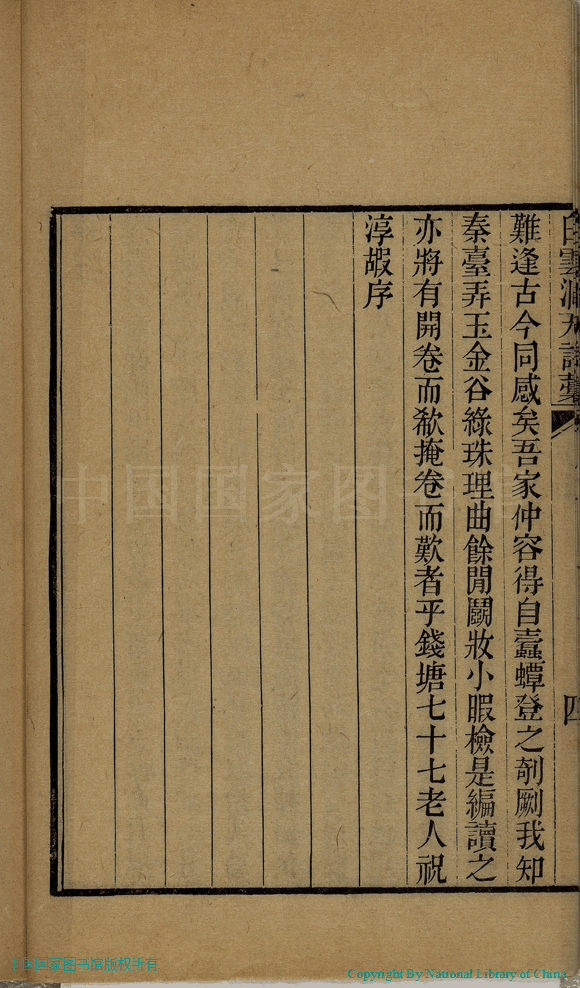 白雲洞天詩藳
四
難逢古今同感矣吾家仲容得自蠹蟫登之剞劂我知
秦臺弄玉金谷綠珠理曲餘閒鬬妝小暇檢是編讀之
亦將有開卷而欷掩卷而歎者乎錢塘七十七老人祝
淳嘏序
中国国家图书
中国国家图书馆版权所有
Copyright By National Library of China